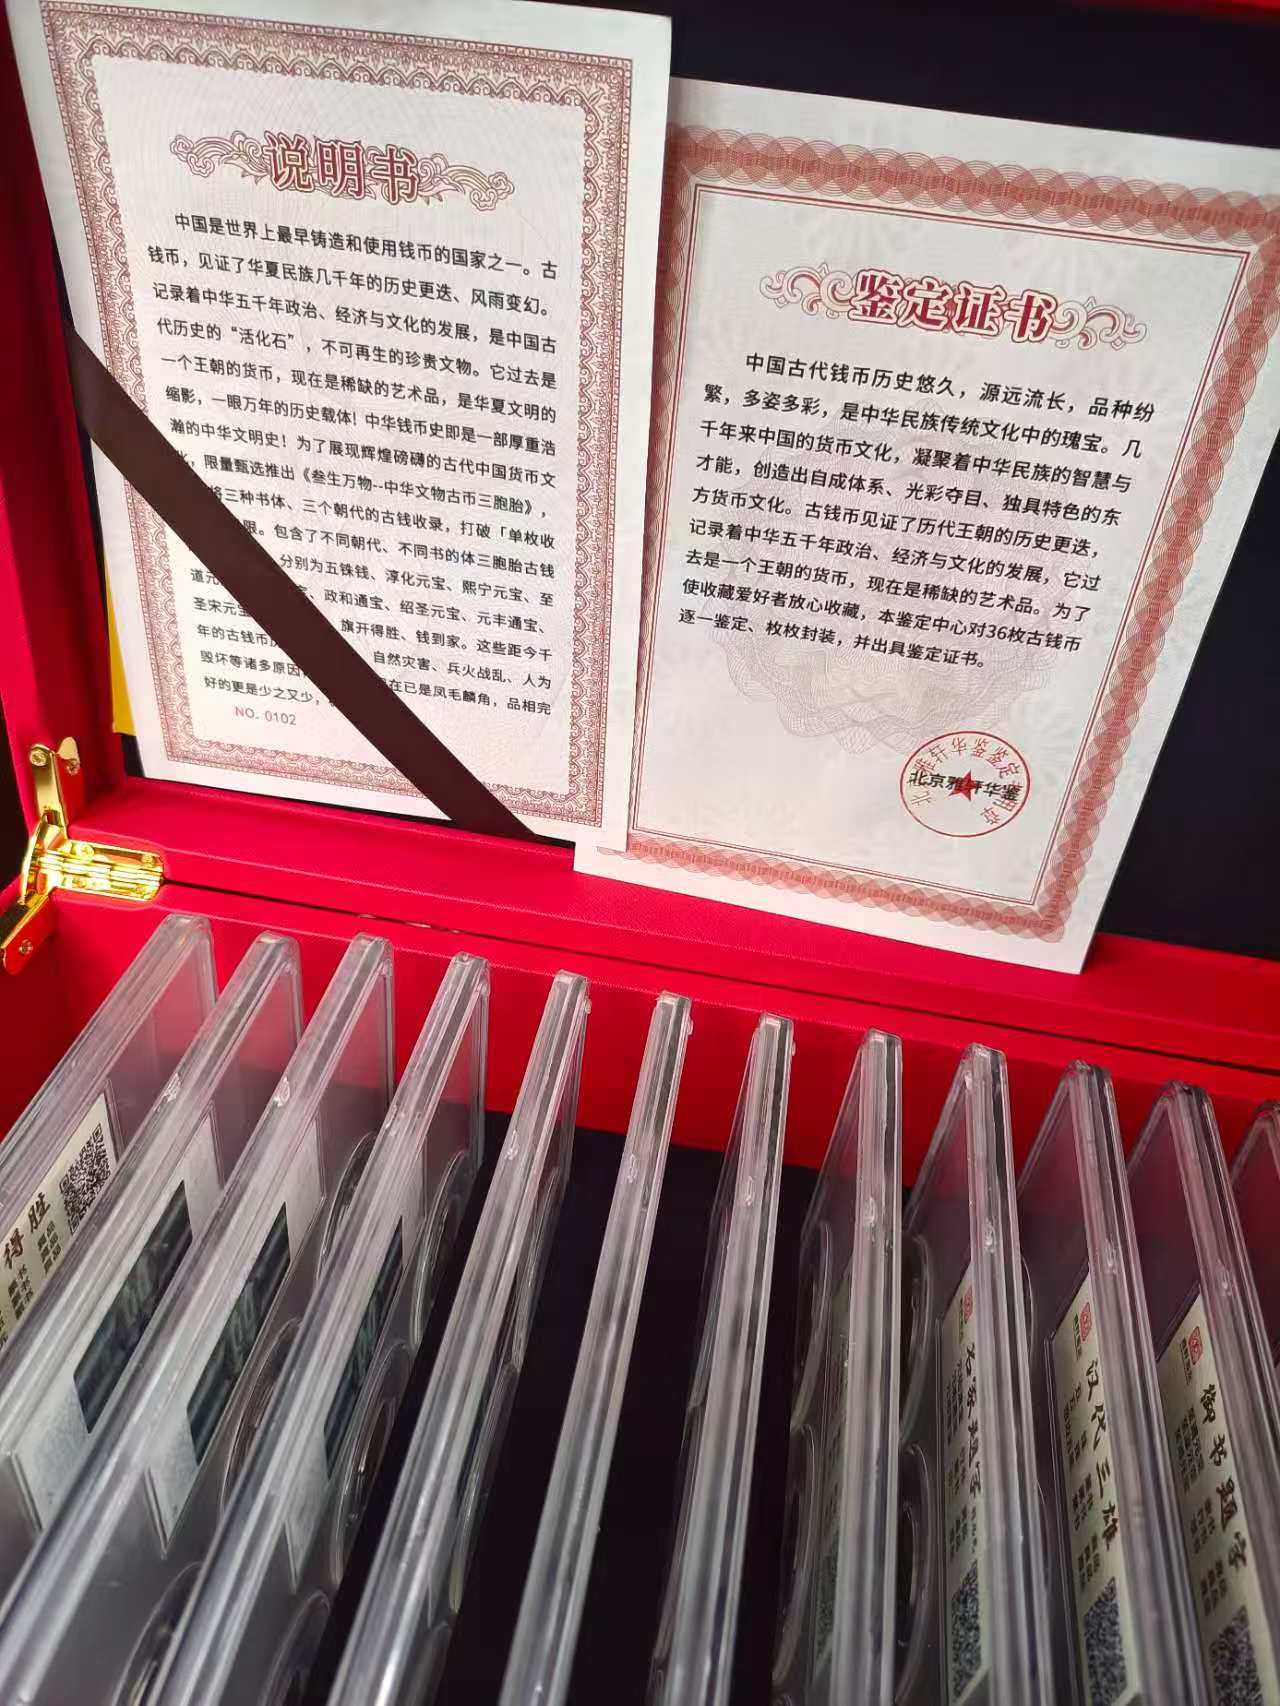 说明书
中国是世界上最早铸造和使用钱币的国家之一。古
钱币，见证了华夏民族几千年的历史更迭、风雨变幻。
记录着中华五千年政治、经济与文化的发展，是中国古
代历史的“活化石”，不可再生的珍贵文物。它过去是
一个王朝的货币，现在是稀缺的艺术品，是华夏文明的
缩影，一眼万年的历史载体！中华钱币史即是一部厚重浩
瀚的中华文明史！为了展现辉煌磅礴的古代中国货币文
，限量甄选推出《叁生万物--中华文物古币三胞胎》，
将三种书体、三个朝代的古钱收录，打破「单枚收
限。包含了不同朝代、不同书的体三胞胎古钱
分别为五铢钱、淳化元宝、熙宁元宝、至
道元、政和通宝、绍圣元宝、元丰通宝、
圣宋元宝旗开得胜、钱到家。这些距今千
年的古钱币自然灾害、兵火战乱、人为
毁坏等诸多原因在已是凤毛麟角，品相完
好的更是少之又少，
NO. 0102
鉴定证书
中国古代钱币历史悠久，源远流长，品种纷
繁，多姿多彩，是中华民族传统文化中的瑰宝。几
千年来中国的货币文化，凝聚着中华民族的智慧与
才能，创造出自成体系、光彩夺目、独具特色的东
方货币文化。古钱币见证了历代王朝的历史更迭，
记录着中华五千年政治、经济与文化的发展，它过
去是一个王朝的货币，现在是稀缺的艺术品。为了
使收藏爱好者放心收藏，本鉴定中心对36枚古钱币
逐一鉴定、枚枚封装，并出具鉴定证书。
北京雅轩华鉴
得胜
汉代三雄
御书题字